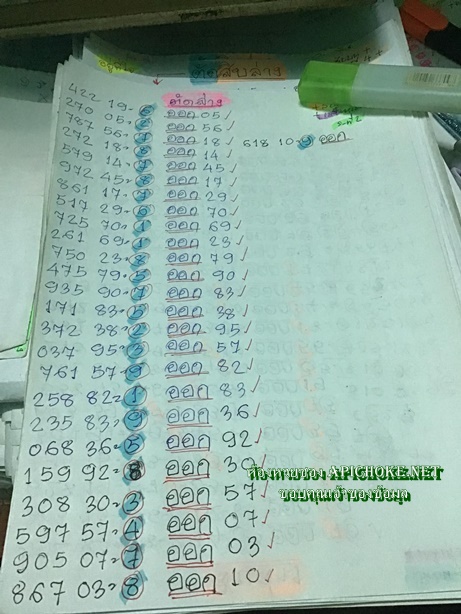 ตัดสิบล่าง
ตัดล่าง
422 19- ออก 05 ✓
270 05- ออก 56 ✓
787 56- ออก 18 ✓ 618 10-9 ออก
272 18- ออก 14 ✓
579 14- ออก 45 ✓
972 45-8 ออก 17 ✓
861 17- ออก 29 ✓
517 29-6 ออก 70 ✓
725 70-1 ออก 69 ✓
261 69-1 ออก 23 ✓
750 23-8 ออก 79 ✓
475 79-5 ออก 90 ✓
935 90-7 ออก 83 ✓
171 83-5 ออก 38 ✓
372 38-2 ออก 95 ✓
037 95-3 ออก 57 ✓
761 57-9 ออก 82 ✓
258 82-1 ออก 83 ✓
235 83-9 ออก 36 ✓
068 36-5 ออก 92 ✓
159 92-8 ออก 30 ✓
308 30-3 ออก 57 ✓
597 57-4 ออก 07 ✓
905 07-7 ออก 03 ✓
867 03-8 ออก 10 ✓
ห้องหวยซอง APICHOKE.NET
ขอบคุณเจ้าของข้อมูล